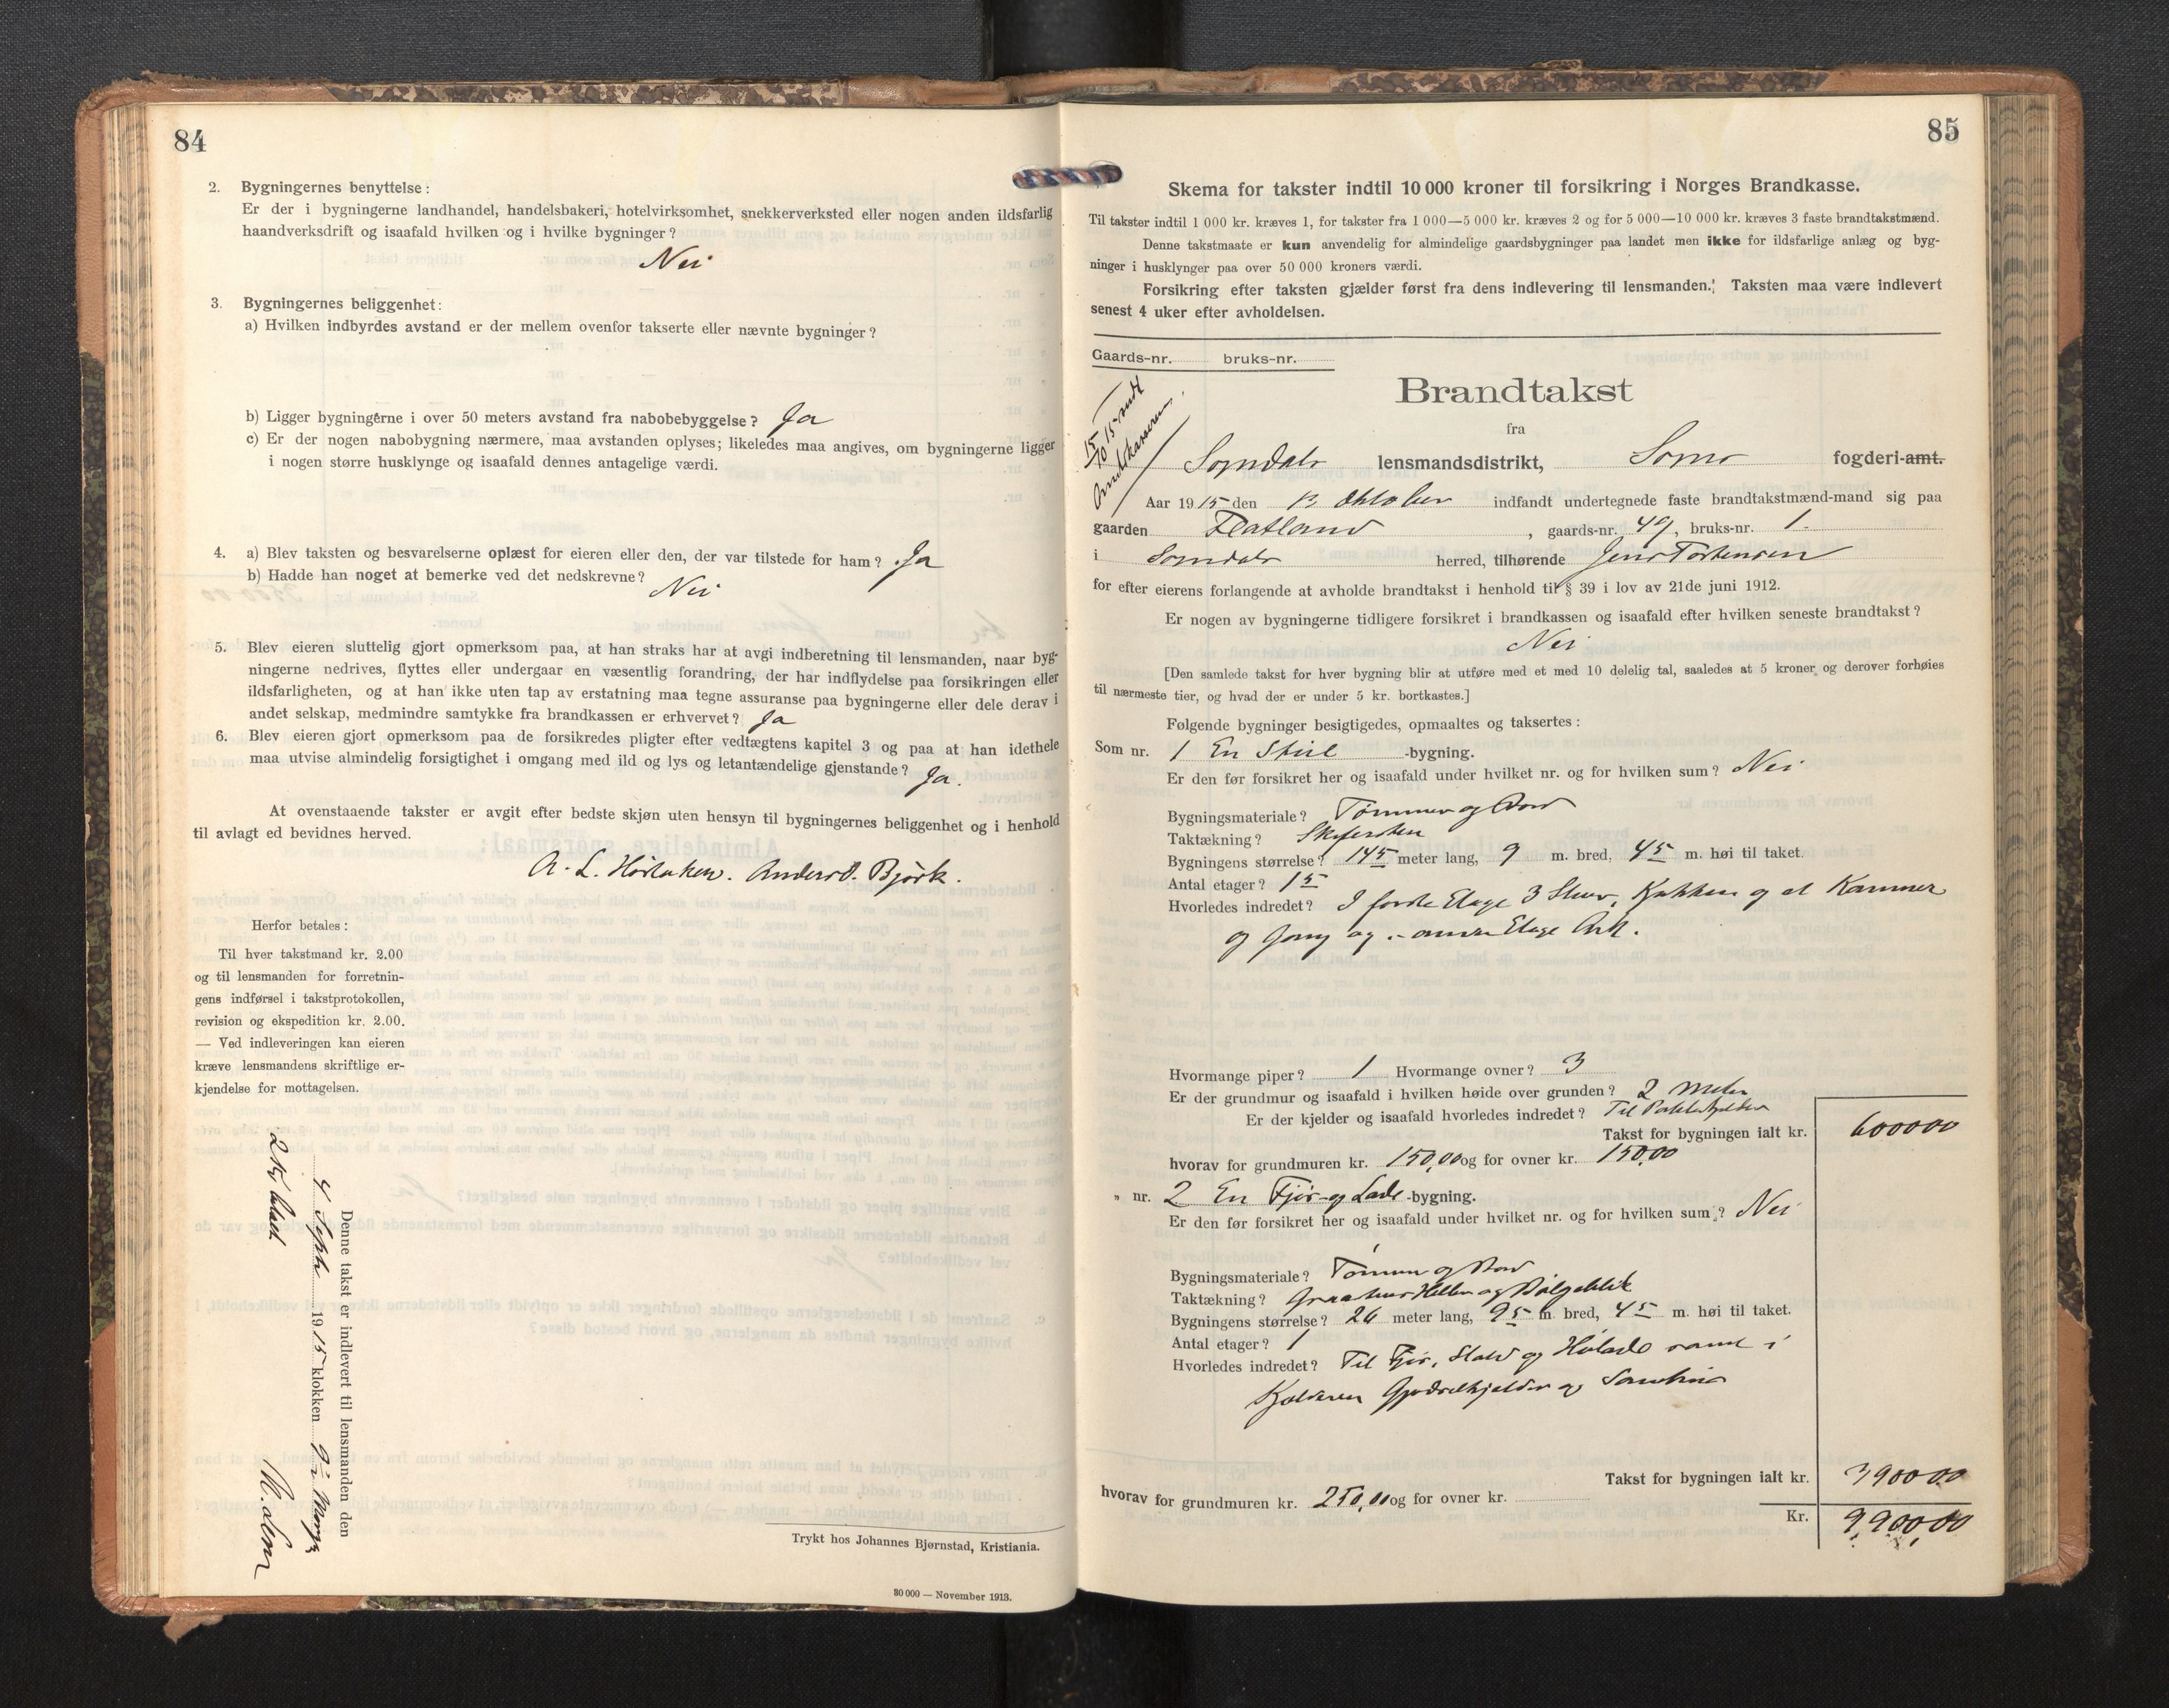 84
2. Bygningernes benyttelse:
Er der i bygningerne landhandel, handelsbakeri, hotelvirksomhet, snekkerverksted eller nogen anden ildsfarlig
haandverksdrift og isaafald hvilken og i hvilke bygninger?
Nei
3. Bygningernes beliggenhet:
a) Hvilken indbyrdes avstand er der mellem ovenfor takserte eller nævnte bygninger?
b) Ligger bygningerne i over 50 meters avstand fra nabobebyggelse? Ja
c) Er der nogen nabobygning nærmere, maa avstanden oplyses; likeledes maa angives, om bygningerne ligger
i nogen større husklynge og isaafald dennes antagelige værdi.
4. a) Blev taksten og besvarelserne oplæst for eieren eller den, der var tilstede for ham? Ja
b) Hadde han noget at bemerke ved det nedskrevne?
Nei
5. Blev eieren sluttelig gjort opmerksom paa, at han straks har at avgi indberetning til lensmanden, naar byg-
ningerne nedrives, flyttes eller undergaar en væsentlig forandring, der har indflydelse paa forsikringen eller
ildsfarligheten, og at han ikke uten tap av erstatning maa tegne assuranse paa bygningerne eller dele derav i
andet selskap, medmindre samtykke fra brandkassen er erhvervet? Ja
6. Blev eieren gjort opmerksom paa de forsikredes pligter efter vedtægtens kapitel 3 og paa at han idethele
maa utvise almindelig forsigtighet i omgang med ild og lys og letantændelige gjenstande? Ja.
At ovenstaaende takster er avgit efter bedste skjøn uten hensyn til bygningernes beliggenhet og i henhold
til avlagt ed bevidnes herved.
A. L. Anders O. Bjørk.
Herfor betales:
Til hver takstmand kr. 2.00
og til lensmanden for forretnin-
gens indførsel i takstprotokollen,
revision og ekspedition kr. 2.00.
— Ved indleveringen kan eieren
kræve lensmandens skriftlige er-
kjendelse for mottagelsen.
Denne takst er indlevert til lensmanden den
4 Septr 1915 klokken 9½
2 Kr betalt
Trykt hos Johannes Bjørnstad, Kristiania.
30 000 — November 1913.
85
Skema for takster indtil 10 000 kroner til forsikring i Norges Brandkasse.
Til takster indtil 1 000 kr. kræves 1, for takster fra 1 000—5 000 kr. kræves 2 og for 5 000—10 000 kr. kræves 3 faste brandtakstmænd.
Denne takstmaate er kun anvendelig for almindelige gaardsbygninger paa landet men ikke for ildsfarlige anlæg og byg-
ninger i husklynger paa over 50 000 kroners værdi.
Forsikring efter taksten gjælder først fra dens indlevering til lensmanden. Taksten maa være indlevert
senest 4 uker efter avholdelsen.
Gaards-nr. bruks-nr.
15/10 15 sendt
Brandkasseren.
Brandtakst
fra
Sogndals lensmandsdistrikt, Sogns fogderi-amt.
Aar 1915 den 12 Oktober indfandt undertegnede faste brandtakstmænd-mand sig paa
gaarden Flatland, gaards-nr. 49, bruks-nr. 1.
i Sogndals herred, tilhørende Jens Torstensen
for efter eierens forlangende at avholde brandtakst i henhold til § 39 i lov av 21de juni 1912.
Er nogen av bygningerne tidligere forsikret i brandkassen og isaafald efter hvilken seneste brandtakst?
Nei
[Den samlede takst for hver bygning blir at utføre med et med 10 delelig tal, saaledes at 5 kroner og derover forhøies
til nærmeste tier, og hvad der er under 5 kr. bortkastes.]
Følgende bygninger besigtigedes, opmaaltes og taksertes:
Som nr. 1 En Stue -bygning.
Er den før forsikret her og isaafald under hvilket nr. og for hvilken sum? Nei
Bygningsmateriale? Tømmer og Bord
Taktækning? Skifersten
Bygningens størrelse? 14 5 meter lang, 9 m. bred, 4 5 m. høi til taket.
Antal etager? 1 5
Hvorledes indredet? I første Etage 3 Stuer, Kjøkken og et Kammer
og Gang og anden Etage Ark.
Hvormange piper? 1 Hvormange ovner? 3
Er der grundmur og isaafald i hvilken høide over grunden? 2 Meter
Er der kjelder og isaafald hvorledes indredet? Til Potetkjelder
Takst for bygningen ialt kr. 6000 00
hvorav for grundmuren kr. 150,00 og for ovner kr. 150,00
" nr. 2 En Fjøs- og Lade -bygning.
Er den før forsikret her og isaafald under hvilket nr. og for hvilken sum? Nei
Bygningsmateriale? Tømmer og Bord
Taktækning? Heller og Bølgeblik
Bygningens størrelse? 26 meter lang, 9 5 m. bred, 4 5 m. høi til taket.
Antal etager? 1
Hvorledes indredet? Til Fjøs, Stald og Hølade samt i
Kjelderen Gjødselkjelder og
Takst for bygningen ialt kr. 3900 00
hvorav for grundmuren kr. 250,00 og for ovner kr.
Kr. 9,900,00